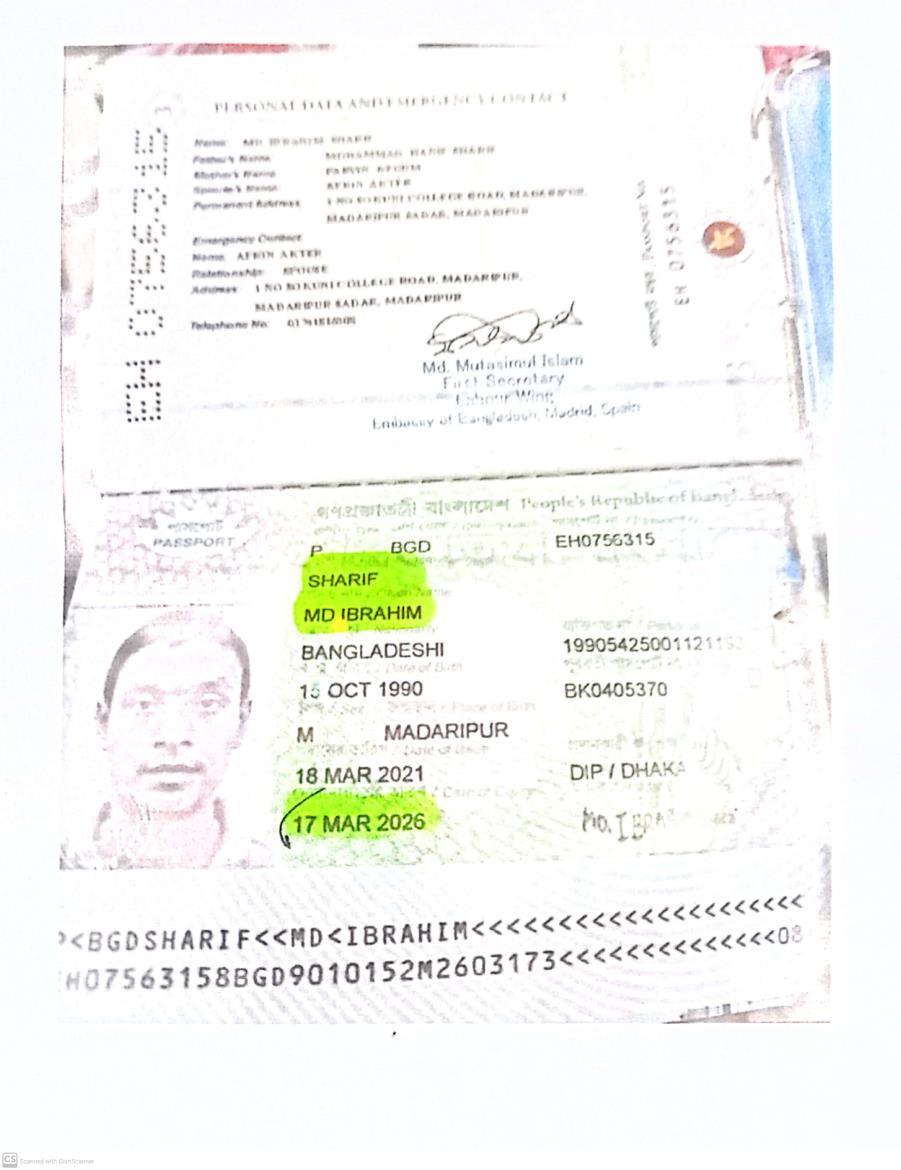 PERSONAL DATA AND EMERGENCY CONTACT
Name: MD IBRAHIM SHARIF
Father's Name MOHAMMAD HANIF SHARIF
Mother's Name PARVIN BEGUM
Spouse's Name AFRIN AKTER
Permanent Address 1 NO SO KUNI COLLEGE ROAD, MADARIPUR,
MADARIPUR SADAR, MADARIPUR
Emergency Contact
Name AFRIN AKTER
Relationship SPOUSE
Address 1 NO SO KUNI COLLEGE ROAD, MADARIPUR,
MADARIPUR SADAR, MADARIPUR
Telephone No.
EH 0756315
EH 0756315
Md. Mutasimul Islam
First Secretary
Labour Wing
Embassy of Bangladesh, Madrid, Spain
গণপ্রজাতন্ত্রী বাংলাদেশ People's Republic of
পাসপোর্ট
PASSPORT
P BGD EH0756315
SHARIF
MD IBRAHIM
BANGLADESHI
Date of Birth
15 OCT 1990 BK0405370
Place of Birth
M MADARIPUR
Date of Issue
18 MAR 2021 DIP / DHAKA
17 MAR 2026
P<BGDSHARIF<<MD<IBRAHIM<<<<<<<<<<<<<<<<<<<<<
EH07563158BGD9010152M2603173<<<<<<<<<<<<<<08
CS Scanned with CamScanner